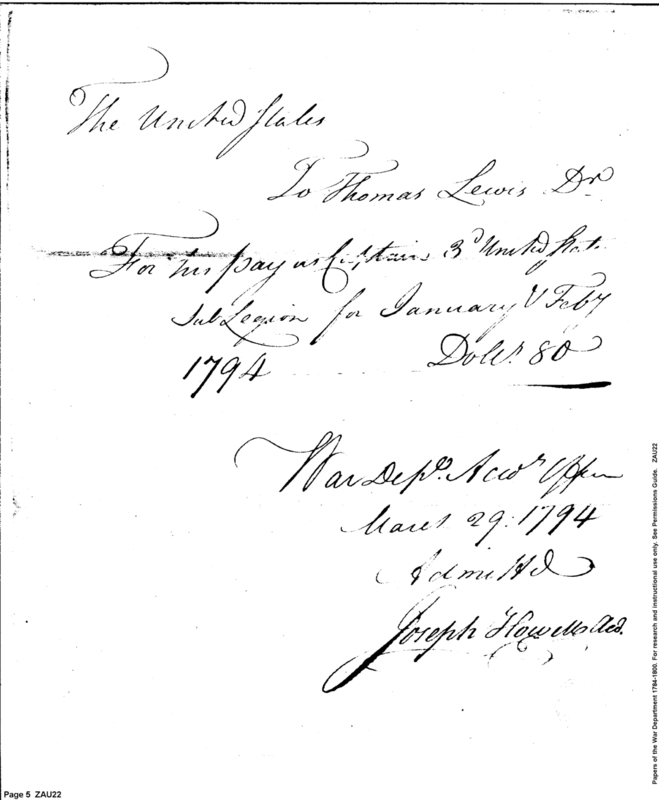 The United States
To Thomas Lewis Dr
For his pay as Captain 3d United States
Sub Legion for January & Feby
1794 Dolrs. 80
War Dept. Accts Office
March 29. 1794
Admitted
Joseph Howell Acct.
Papers of the War Department 1784-1800. For research and instructional use only. See Permissions Guide. ZAU22
Page 5 ZAU22